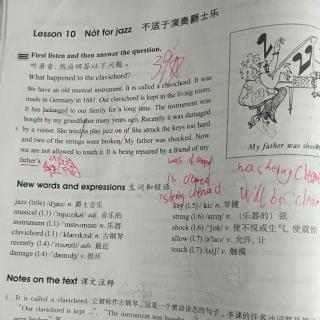 Lesson 10 Not for jazz 不适于演奏爵士乐
First listen and then answer the question.
听录音，然后回答以下问题。
What happened to the clavichord?
We have an old musical instrument. It is called a clavichord. It was
made in Germany in 1681. Our clavichord is kept in the living room.
It has belonged to our family for a long time. The instrument was
bought by my grandfather many years ago. Recently it was damaged
by a visitor. She tried to play jazz on it! She struck the keys too hard
and two of the strings were broken. My father was shocked. Now
we are not allowed to touch it. It is being repaired by a friend of my
father's.
My father was shock
was cleaned
is cleaned
is being cleaned
was being clean
will be clean
New words and expressions 生词和短语
jazz (title) /dʒæz/ n. 爵士音乐
musical (l.1) /'mju:zikəl/ adj. 音乐的
instrument (l.1) /'instrumənt/ n. 乐器
clavichord (l.1) /'klævikɔ:d/ n. 古钢琴
recently (l.4) /'ri:səntli/ adv. 最近
damage (l.4) /'dæmidʒ/ v. 损坏
key (l.5) /ki:/ n. 琴键
string (l.6) /striŋ/ n. （乐器的）弦
shock (l.6) /ʃɔk/ v. 使不悦或生气，使震惊
allow (l.7) /ə'lau/ v. 允许，让
touch (l.7) /tʌtʃ/ v. 触摸
Notes on the text 课文注释
1 It is called a clavichord. 它被称作古钢琴。这是一个被动语态的句子。本课的许多动词都是被动
"Our clavichord is kept ...", "The instrument was bought